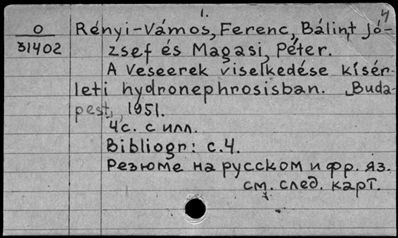 1.
4
O
31402
Rényi-Vámos, Ferenc, Bálint Jó-
zsef és Magasi, Péter.
A Veseerek viselkedése kisér-
leti hydronephrosisban. Buda-
pest, 1951.
4 с. с илл.
Bibliogr: с.4.
Резюме на русском и фр. яз.
см. след. карт.